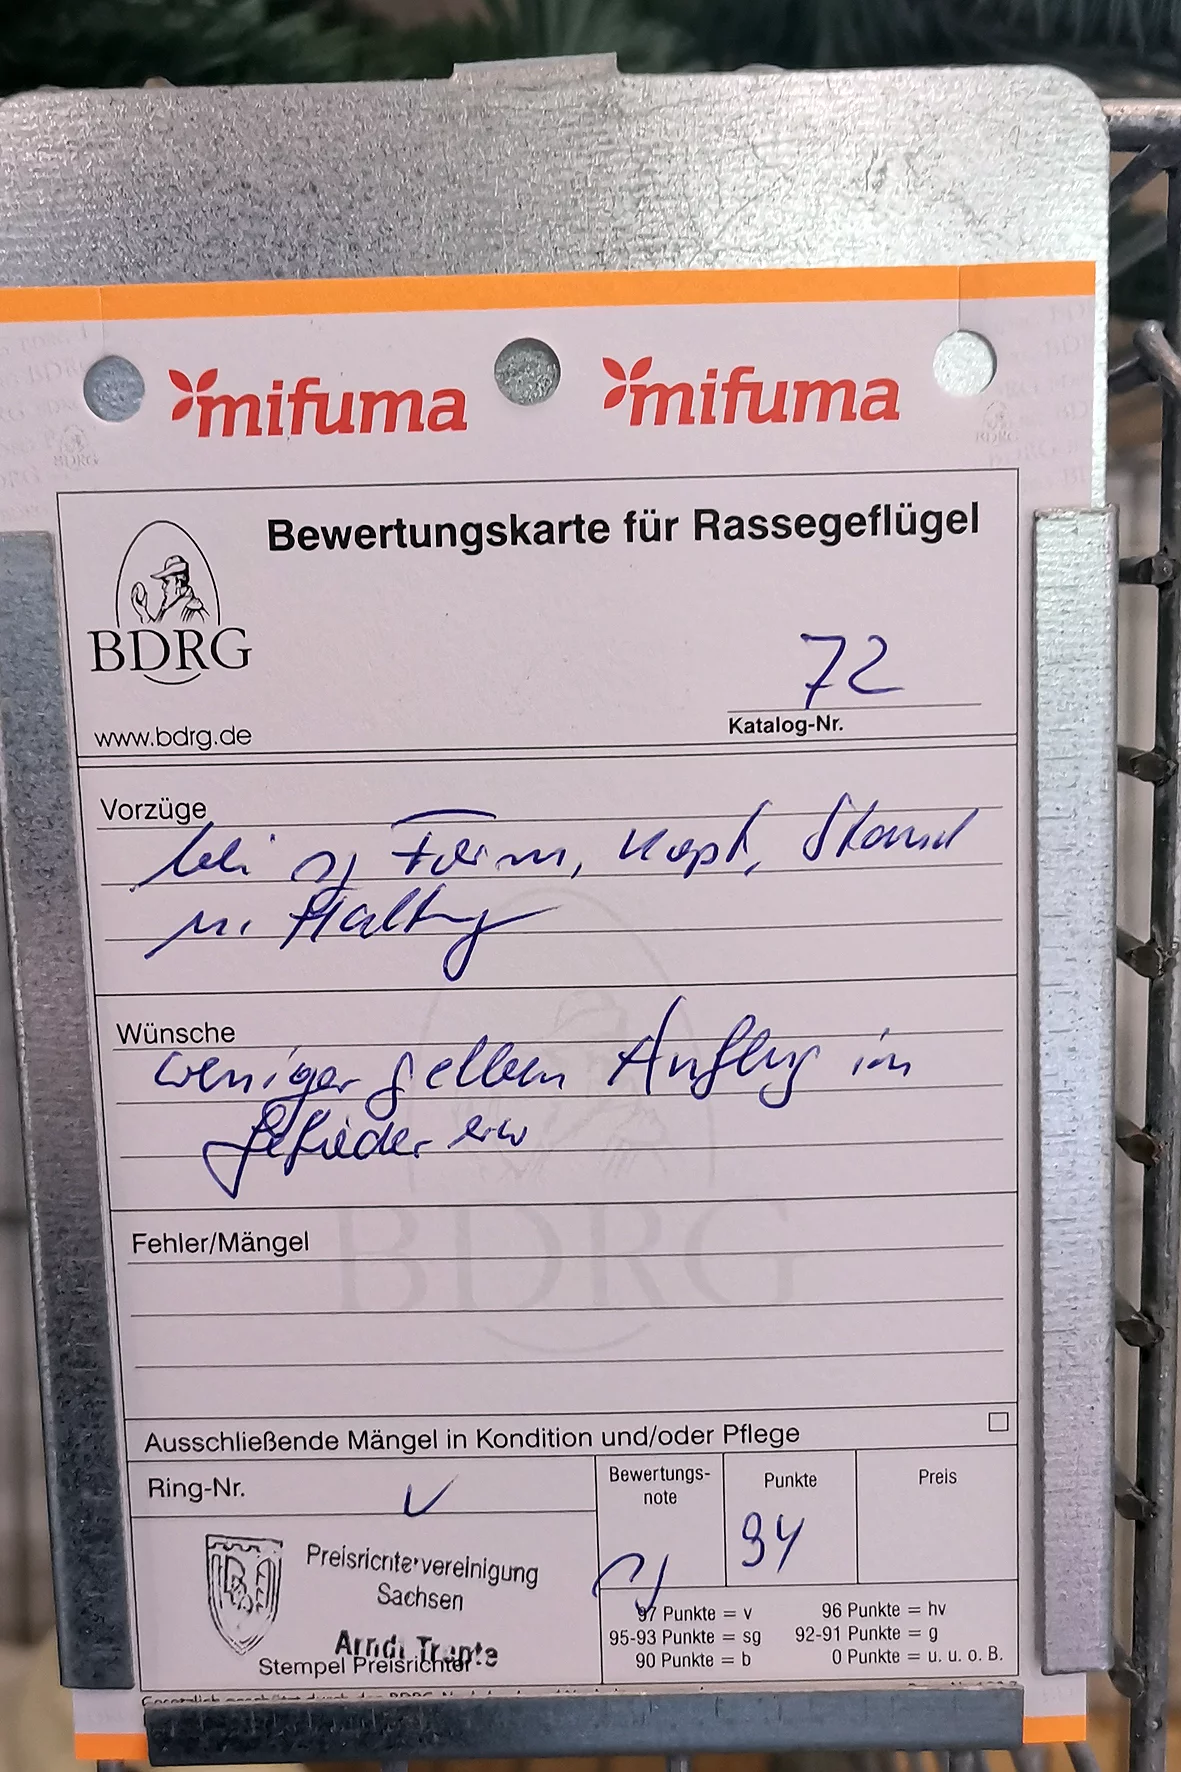 mifuma mifuma
Bewertungskarte für Rassegeflügel
BDRG
72
www.bdrg.de
Katalog-Nr.
Vorzüge
Form, Kopf, Stand
u. Haltung
Wünsche
weniger gelben Anflug im
Gefieder erw
BDRG
Fehler/Mängel
Ausschließende Mängel in Kondition und/oder Pflege
Ring-Nr.
Bewertungs-
note
Punkte
Preis
sg
94
Preisrichtervereinigung
Sachsen
Stempel Preisrichter
97 Punkte = v 96 Punkte = hv
95-93 Punkte = sg 92-91 Punkte = g
90 Punkte = b 0 Punkte = u. u. o. B.